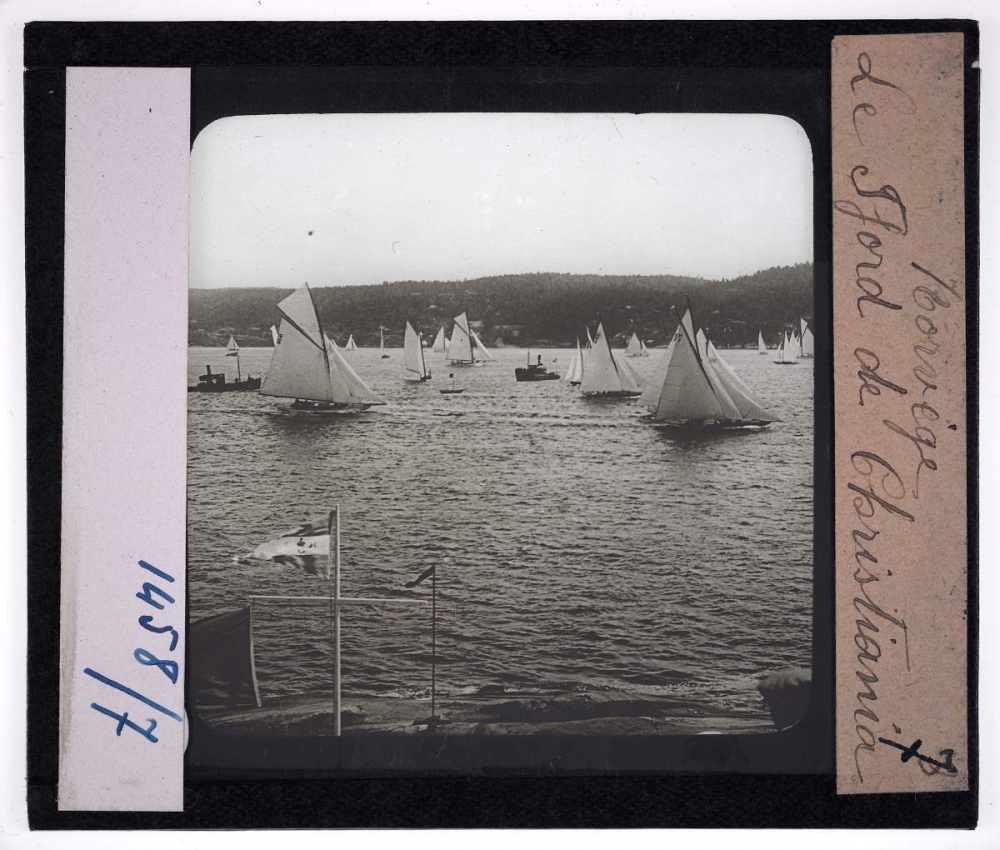 1458/7
Norvège
Le Fjord de Christiania